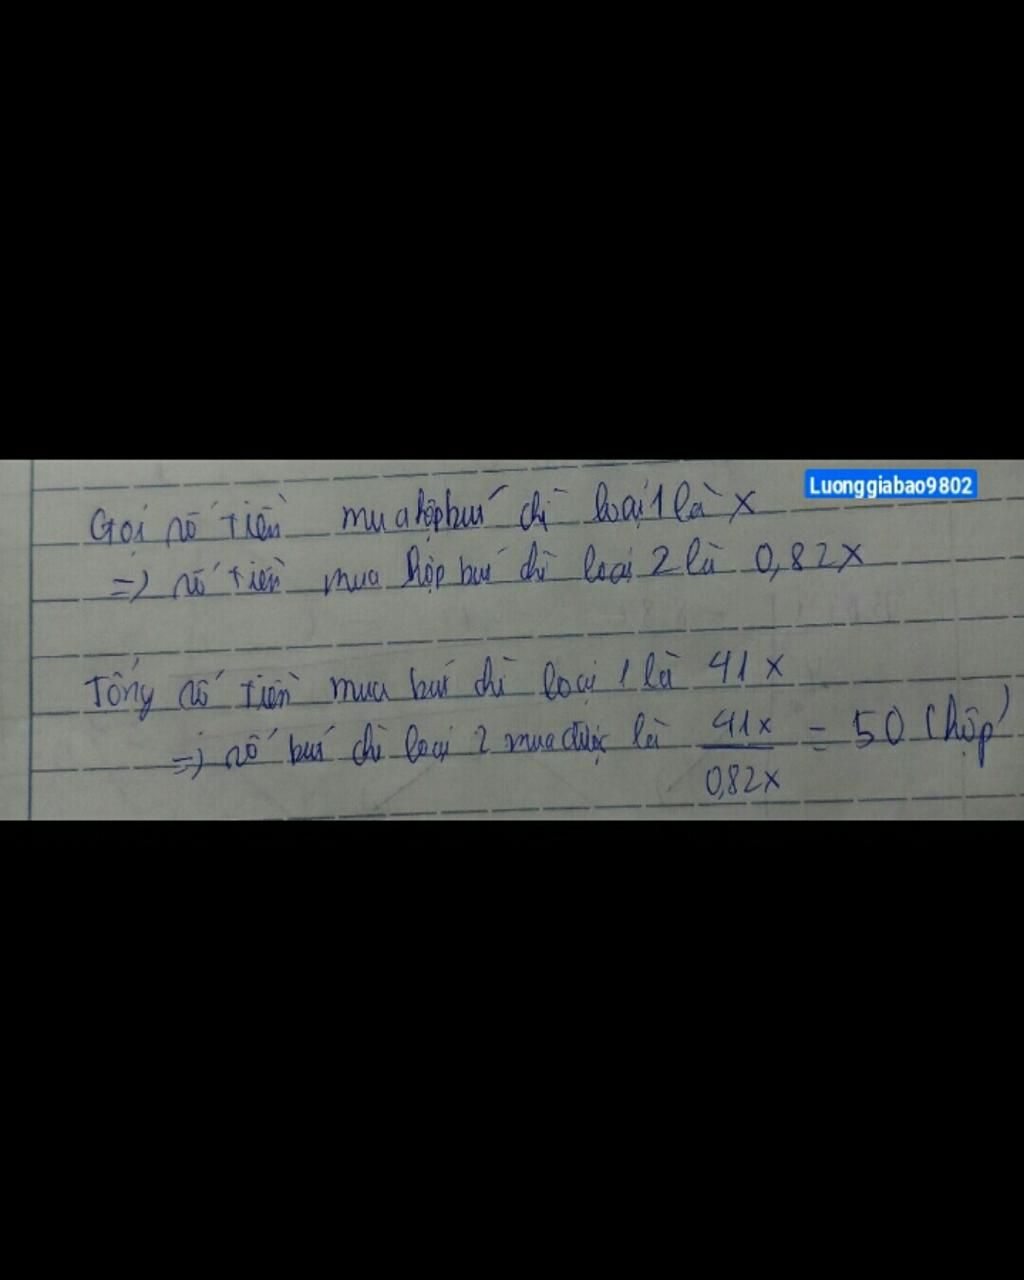 Luonggiabao9802
Gọi số tiền mua hộp bút chì loại 1 là x
=> số tiền mua hộp bút chì loại 2 là 0,82x
Tổng số tiền mua bút chì loại 1 là 41x
=> số bút chì loại 2 mua được là 41x / 0,82x = 50 (hộp)